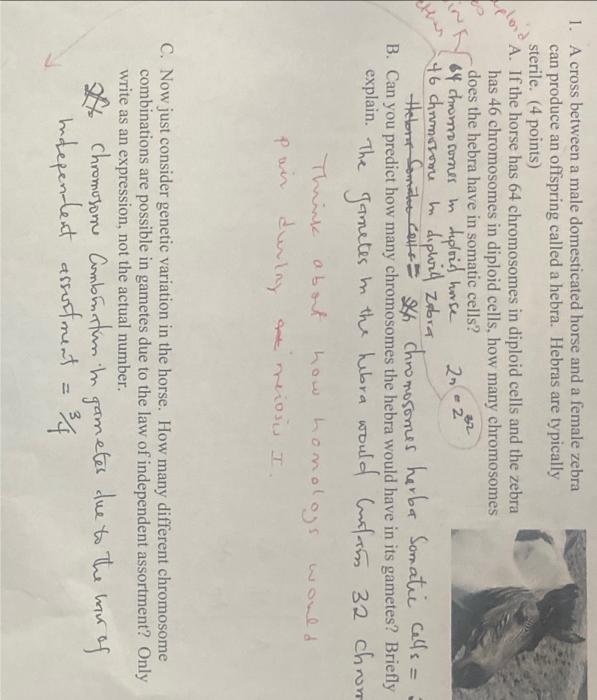 1. A cross between a male domesticated horse and a female zebra
can produce an offspring called a hebra. Hebras are typically
sterile. (4 points)
A. If the horse has 64 chromosomes in diploid cells and the zebra
has 46 chromosomes in diploid cells, how many chromosomes
does the hebra have in somatic cells?
64 chromosomes in diploid horse 2n = 2³²
46 chromosome in diploid zebra
chromosomes herba Somatic Cells =
B. Can you predict how many chromosomes the hebra would have in its gametes? Briefly
explain. The gametes in the hebra would Contain 32 chrom
Think about how homologs would
pair during meiosis I.
C. Now just consider genetic variation in the horse. How many different chromosome
combinations are possible in gametes due to the law of independent assortment? Only
write as an expression, not the actual number.
chromosome Combination in gametes due to the law of
Independent assortment =